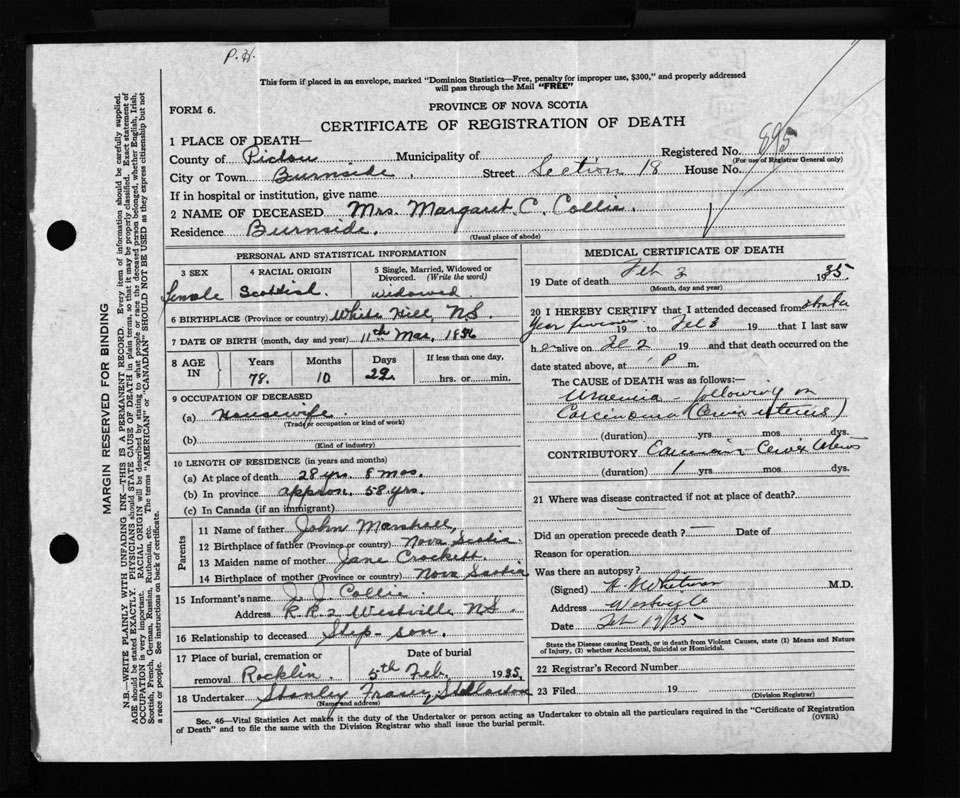 P.H.
This form if placed in an envelope, marked "Dominion Statistics—Free, penalty for improper use, $300," and properly addressed
will pass through the Mail "FREE"
FORM 6.
PROVINCE OF NOVA SCOTIA
CERTIFICATE OF REGISTRATION OF DEATH
1 PLACE OF DEATH—
Registered No. 895
(For use of Registrar General only)
County of Pictou Municipality of
City or Town Burnside. Street Section 18 House No.
If in hospital or institution, give name
2 NAME OF DECEASED Mrs. Margaret. C. Collie.
Residence Burnside.
(Usual place of abode)
PERSONAL AND STATISTICAL INFORMATION
3 SEX
Female
4 RACIAL ORIGIN
Scottish
5 Single, Married, Widowed or
Divorced. (Write the word)
Widowed
6 BIRTHPLACE (Province or country) White Hill, N.S.
7 DATE OF BIRTH (month, day and year) 11th Mar. 1856
8 AGE IN
Years 78.
Months 10
Days 22
If less than one day.
hrs. or min.
9 OCCUPATION OF DECEASED
(a) Housewife.
(Trade, occupation or kind of work)
(b)
(Kind of industry)
10 LENGTH OF RESIDENCE (in years and months)
(a) At place of death 28 yrs. 8 mos.
(b) In province approx. 58 yrs.
(c) In Canada (if an immigrant)
Parents
11 Name of father John Marshall,
12 Birthplace of father (Province or country) Nova Scotia.
13 Maiden name of mother Jane Crockett.
14 Birthplace of mother (Province or country) Nova Scotia
15 Informant's name J. J. Collie.
Address R.R.2 Westville N.S.
16 Relationship to deceased Step-son.
17 Place of burial, cremation or removal Rocklin
Date of burial 5th Feb. 1935,
18 Undertaker Stanley Fraser, Stellarton
(Name and address)
MEDICAL CERTIFICATE OF DEATH
19 Date of death Feb 3 1935.
(Month, day and year)
20 I HEREBY CERTIFY that I attended deceased from
Year 19 to Feb 3 19 and that I last saw
h er alive on Feb 2 19 and that death occurred on the
date stated above, at P m.
The CAUSE of DEATH was as follows:—
Uraemia - following on
Carcinoma (Cervix uterus)
(duration) yrs mos dys.
CONTRIBUTORY Carcinoma - Cervix Uterus
(duration) 1 yrs. mos. dys.
21 Where was disease contracted if not at place of death?
Did an operation precede death? — Date of
Reason for operation
Was there an autopsy?
(Signed) Whitman M.D.
Address Westville
Date Feb 19/35
State the Disease causing Death, or in death from Violent Causes, state (1) Means and Nature
of Injury, (2) whether Accidental, Suicidal or Homicidal.
22 Registrar's Record Number
23 Filed 19
(Division Registrar)
Sec. 46—Vital Statistics Act makes it the duty of the Undertaker or person acting as Undertaker to obtain all the particulars required in the "Certificate of Registration
of Death" and to file the same with the Division Registrar who shall issue the burial permit.
(OVER)
MARGIN RESERVED FOR BINDING
N.B.—WRITE PLAINLY WITH UNFADING INK—THIS IS A PERMANENT RECORD. Every item of information should be carefully supplied.
AGE should be stated EXACTLY. PHYSICIANS should STATE CAUSE OF DEATH in plain terms, so that it may be properly classified. Exact statement of
OCCUPATION is very important. RACIAL ORIGIN will be described by stating to what people or race the deceased person belonged, whether English, Irish,
Scottish, French, German, Russian, Ruthenian, etc. The terms "AMERICAN" or "CANADIAN" SHOULD NOT BE USED as they express citizenship but not
a race or people. See instructions on back of certificate.